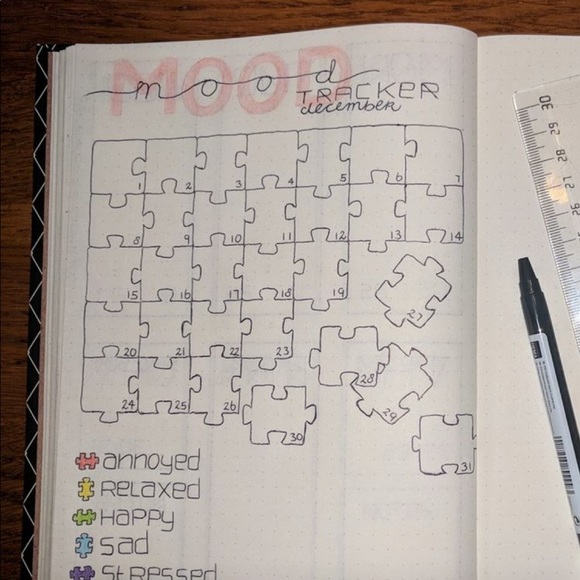 MOOD
mood
TRACKER
december
1 2 3 4 5 6 7
8 9 10 11 12 13 14
15 16 17 18 19
27
20 21 22 23
28
29
24 25 26
30
31
annoyed
RELAXED
HAPPY
sad
StRessed
30 29 28 27